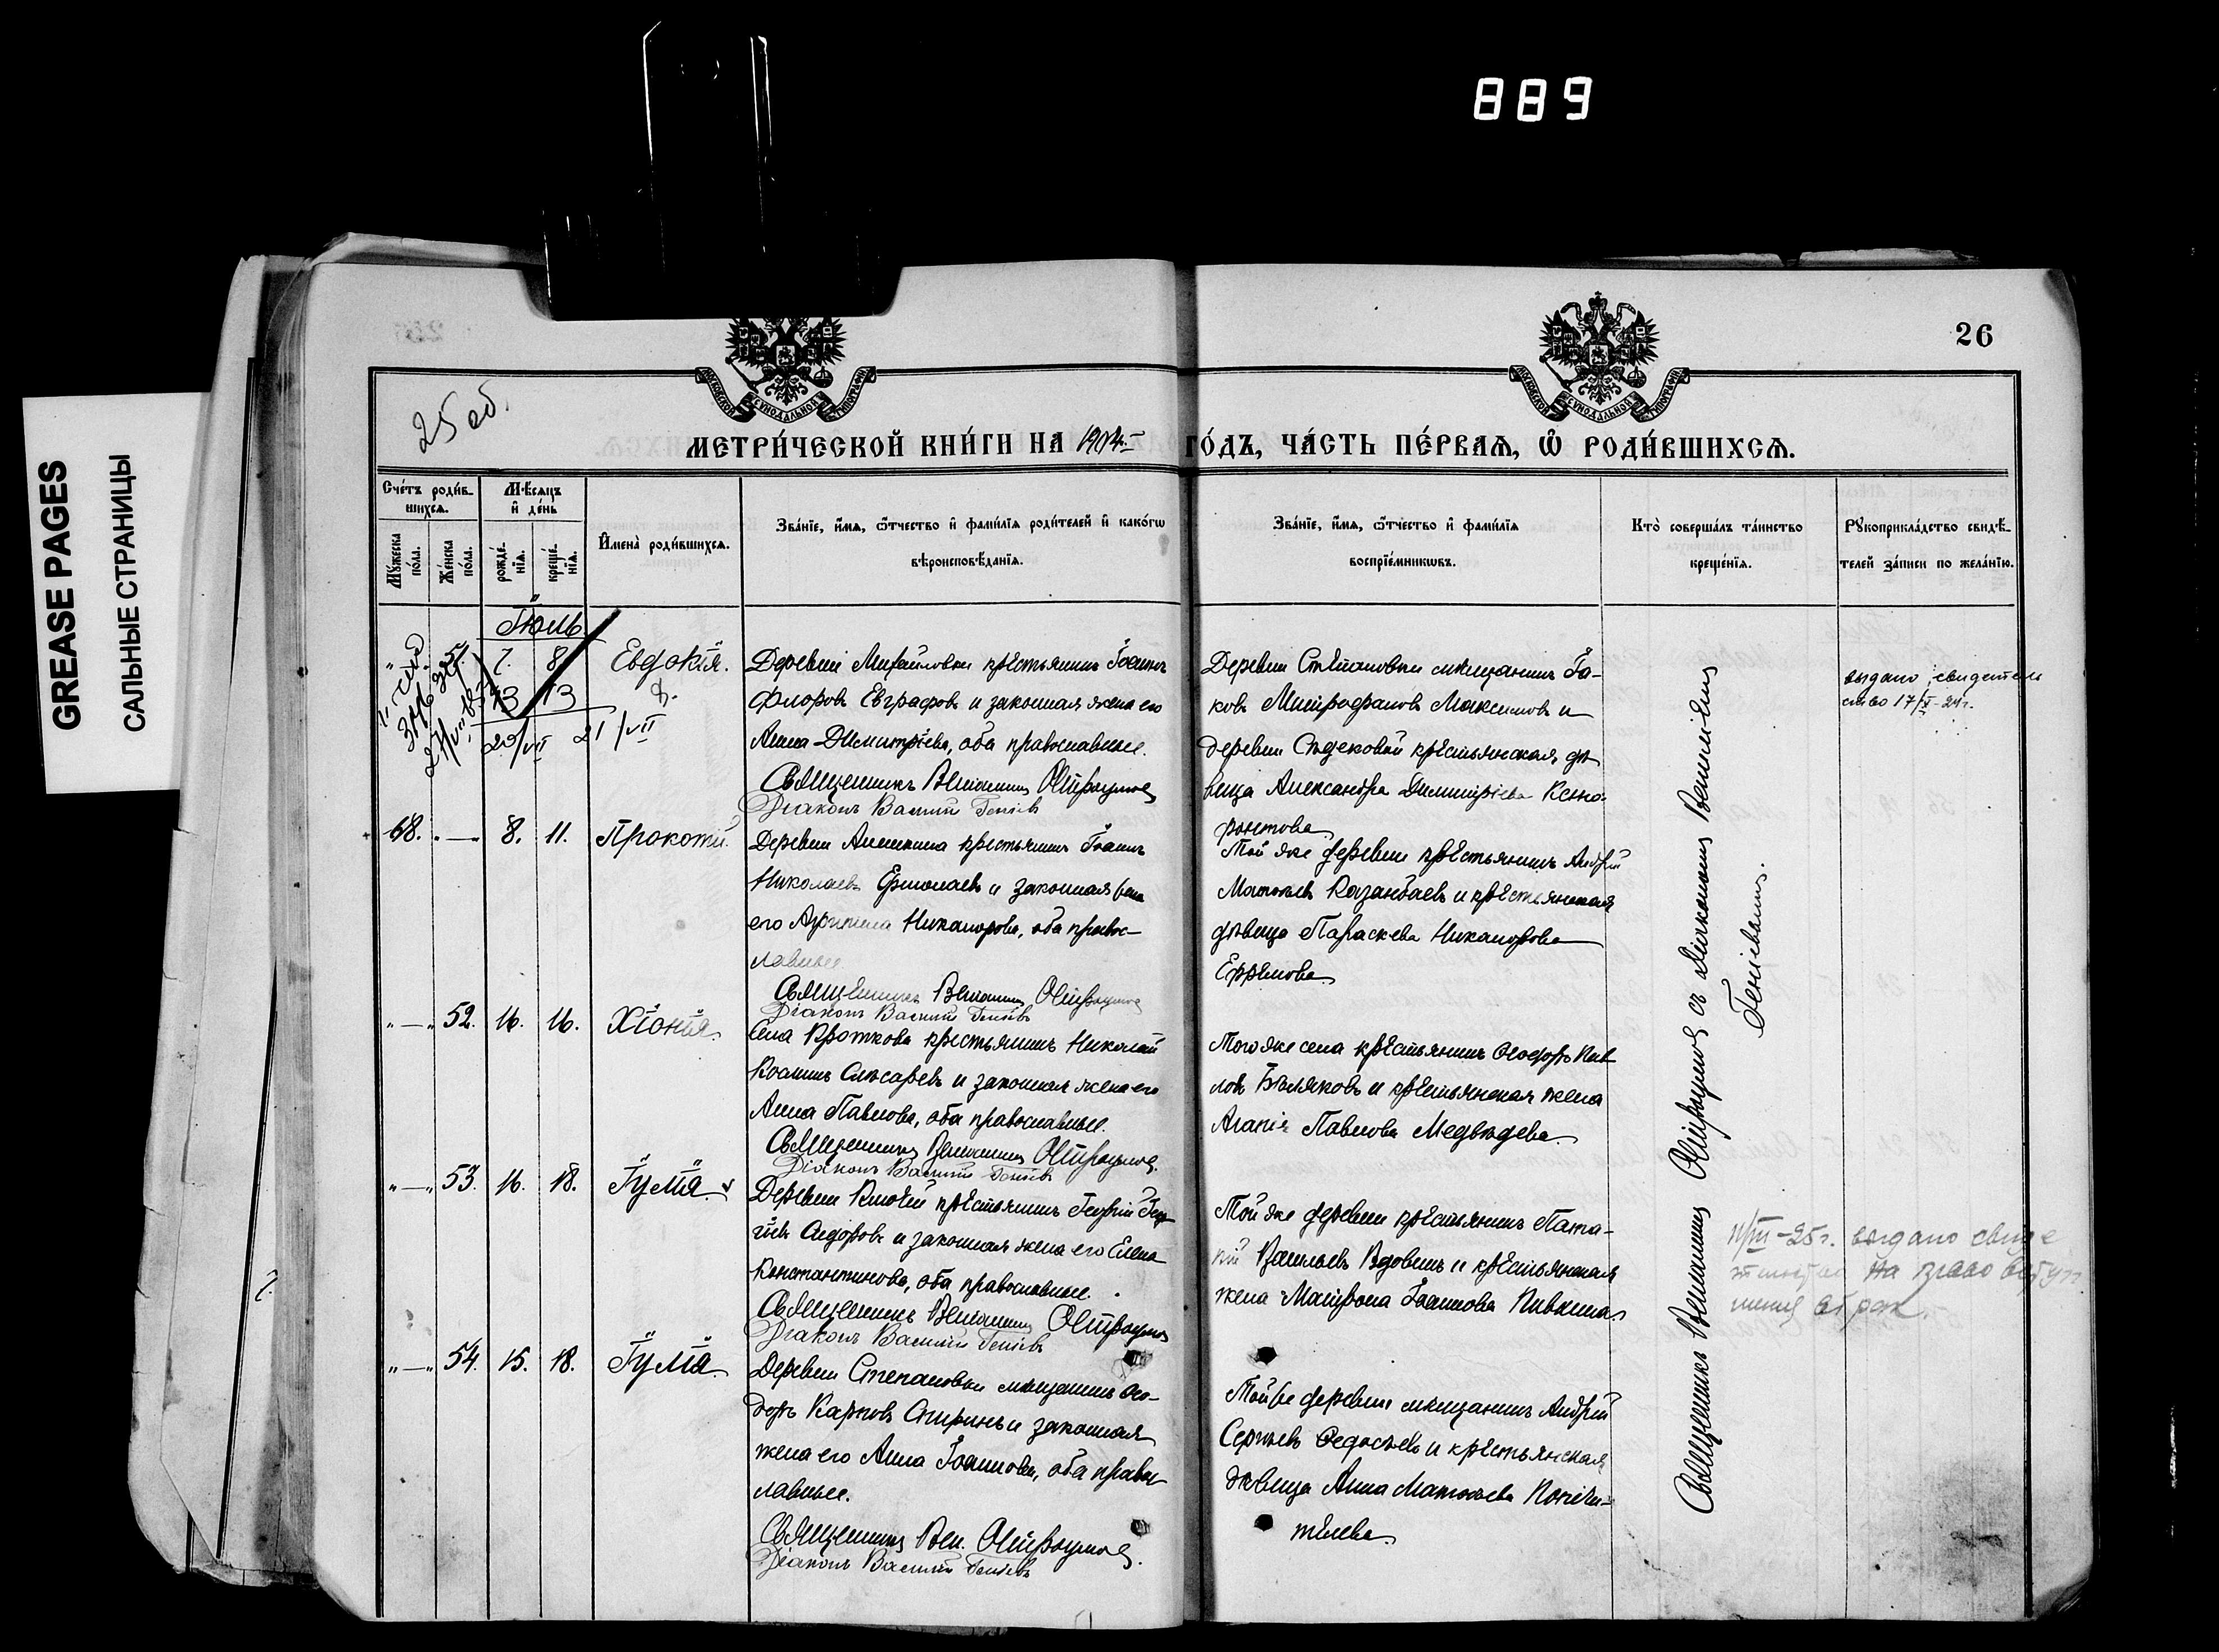 889
GREASE PAGES
САЛЬНЫЕ СТРАНИЦЫ
26
25 об.
МЕТРИ́ЧЕСКОЙ КНИ́ГИ НА 1904 ГО́ДЪ, ЧА́СТЬ ПЕ́РВАѦ, Ѡ҆ РОДИ́ВШИХСѦ.
Сче́тъ роди́в-
шихсѧ.
Мꙋ́жеска по́ла.
Же́нска по́ла.
Мѣ́сѧцъ и҆ де́нь
рожде́-
нїѧ.
креще́-
нїѧ.
И҆мена̀ роди́вшихсѧ.
Зва́нїе, и҆́мѧ, ѻ҆́тчество и҆ фами́лїѧ роди́телей и҆ како́гѡ
вѣроисповѣ́данїѧ.
Зва́нїе, и҆́мѧ, ѻ҆́тчество и҆ фами́лїѧ
воспрїе́мникѡвъ.
Кто̀ соверша́лъ та́инство
креще́нїѧ.
Рꙋкоприкла́дство свидѣ́-
телей за́писи по жела́нїю.
Іюль
7. 8
13 13
20/VII 21/VII
Евдокія.
Деревни Михайловки крестьянинъ Іоаннъ
Флоровъ Евграфовъ и законная жена его
Анна Димитріева, оба православные.
Священникъ Веніаминъ
Діаконъ Василій Геніевъ
Деревни Степановки мѣщанинъ Іа-
ковъ Митрофановъ Максимовъ и
деревни крестьянская дѣ
вица Александра Димитріева Ксено-
фонтова
выдано свидетель
ство 17/X-24г.
68. "—" 8. 11. Прокопій.
Деревни Анненкина крестьянинъ Іоаннъ
Николаевъ Ермолаевъ и законная жена
его Агрипина Никанорова, оба правос-
лавные
Священникъ Веніаминъ
Діаконъ Василій Геніевъ
Той же деревни крестьянинъ Андрей
Матвѣевъ Казанбаевъ и крестьянская
дѣвица Параскева Никанорова
Ефремова
"—" 52. 16. 16. Хіонія.
Села Кроткова крестьянинъ Николай
Слѣсаревъ и законная жена его
Анна Павлова, оба православные.
Священникъ Веніаминъ
Діаконъ Василій Геніевъ
Того же села крестьянинъ Ѳеодоръ Пав
ловъ Бѣляковъ и крестьянская жена
Агапія Павлова Медвѣдева.
"—" 53. 16. 18. Іулія.
Деревни Ключей крестьянинъ Георгій Геор
гіевъ Сидоровъ и законная жена его Елена
Константинова, оба православные.
Священникъ Веніаминъ
Діаконъ Василій Геніевъ
Той же деревни крестьянинъ Пата-
пій Васильевъ Вдовинъ и крестьянская
жена Матрона Іоаннова Пивкина
/III-25г. выдано свиде
на право вступ
ления в брак.
"—" 54. 15. 18. Іулія.
Деревни Степановки мѣщанинъ Ѳео-
доръ Карповъ Спиринъ и законная
жена его Анна Іоаннова, оба правос
лавные.
Священникъ Вен.
Діаконъ Василій Геніевъ
Той же деревни мѣщанинъ Андрей
Сергѣевъ Ѳедосѣевъ и крестьянская
дѣвица Анна Матвѣева Попечи-
телева
Священникъ Веніаминъ съ діакономъ Василіемъ
Геніевымъ.